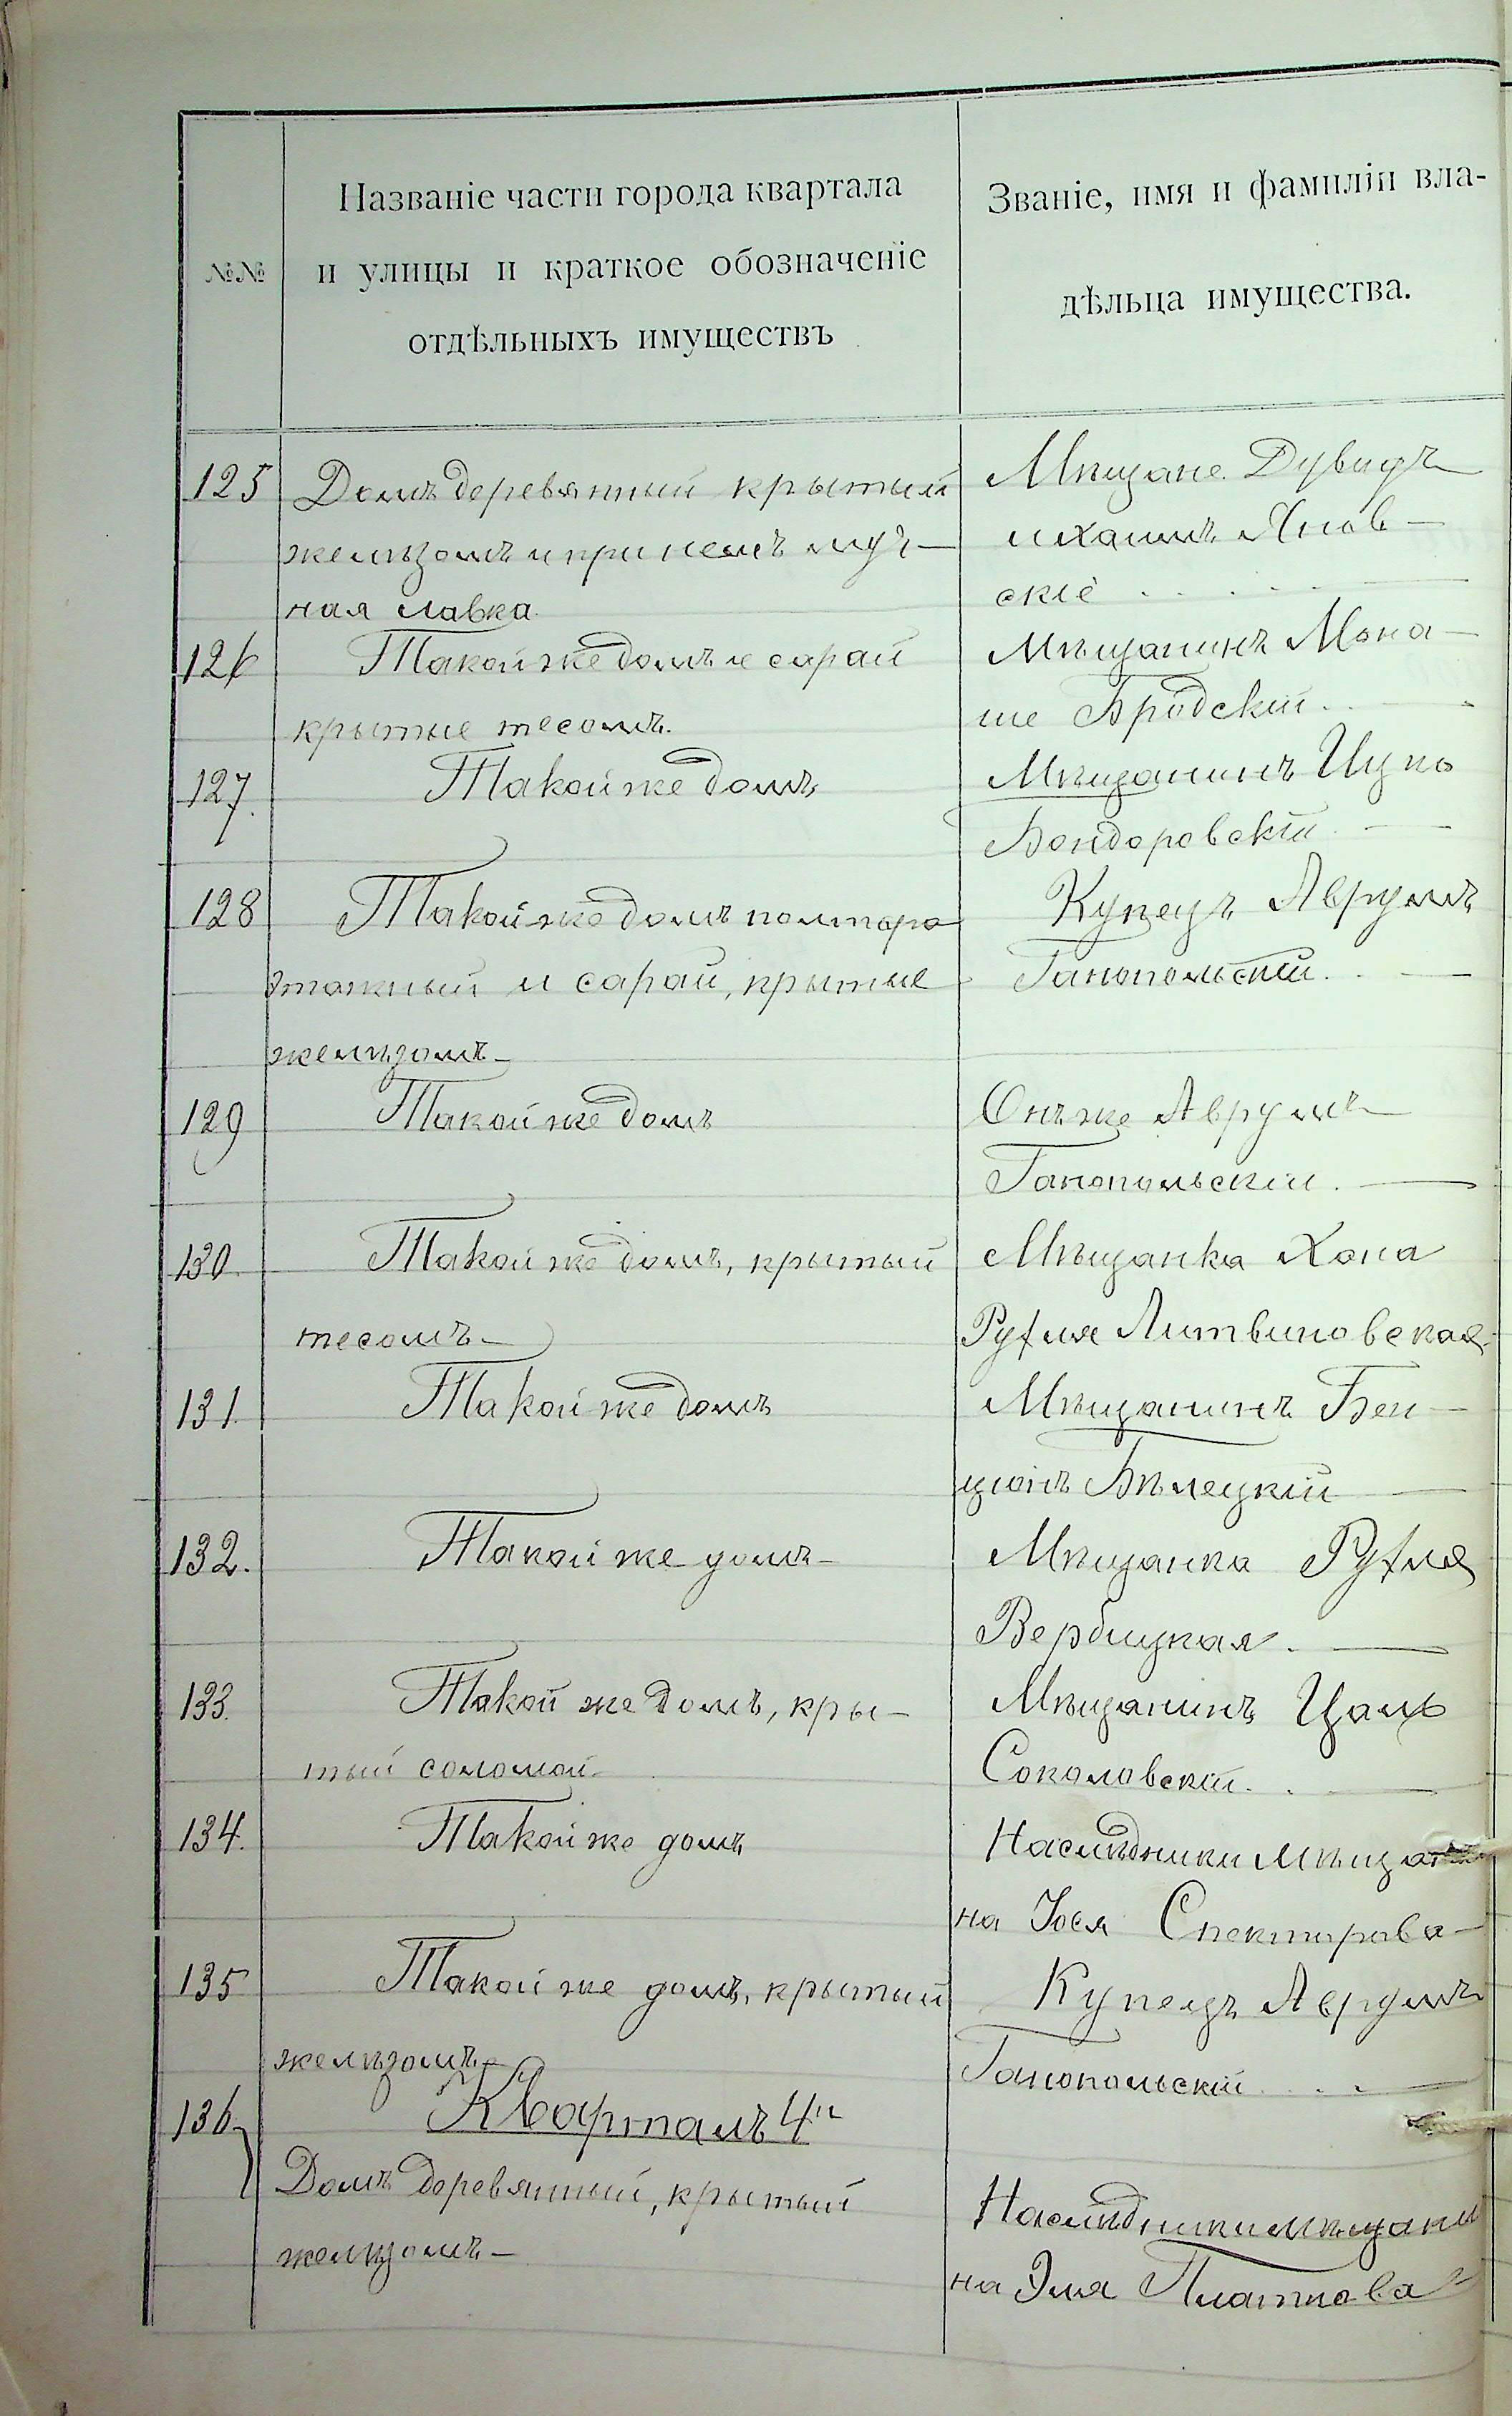 №№
Названіе части города квартала
и улицы и краткое обозначеніе
отдѣльныхъ имуществъ
Званіе, имя и фамиліи вла-
дѣльца имущества.
125 Домъ деревянный крытый
желѣзомъ и при немъ муч-
ная лавка.
Мѣщане Дувидъ
и Хаимъ Янов-
скіе
126 Такой же домъ и сарай
крытые тесомъ.
Мѣщанинъ Мона-
ше Бродскій.
127. Такой же домъ
Мѣщанинъ Ицко
Бондоровскій
128 Такой же домъ полтора
этажный и сарай, крытые
желѣзомъ
Купецъ Аврумъ
Ганопольскій.
129 Такой же домъ
Онъ же Аврумъ
Ганопольскій.
130. Такой же домъ, крытый
тесомъ
Мѣщанка Хана
Рухля Литвиновская.
131. Такой же домъ
Мѣщанинъ Бен-
ціонъ Бѣлецкій
132. Такой же домъ
Мѣщанка Рухля
Вербицкая.
133. Такой же домъ, кры-
тый соломой.
Мѣщанинъ Цаль
Соколовскій.
134. Такой же домъ
Наслѣдники
на Іося Спекторова
135 Такой же домъ, крытый
желѣзомъ
Купецъ Аврумъ
Ганопольскій
136 Кварталъ 4й
Домъ деревянный, крытый
желѣзомъ
Наслѣдники мѣщани
на Эля Платнова